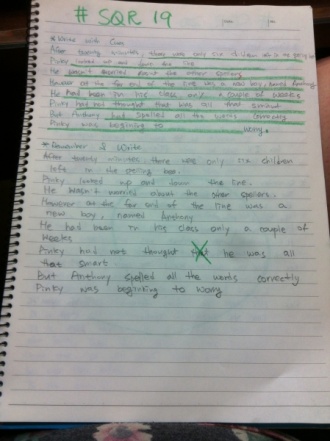 # SQR 19
* Write with Care
After twenty minutes, there were only six children left in the
Pinky looked up and down the line.
He wasn't worried about the other spellers.
However at the far end of the line was a new boy, named Anthony
He had been in his class only a couple of weeks
Pinky had not thought that was all that smart
But Anthony had spelled all the words correctly
Pinky was beginning to worry.
* Remember & Write
After twenty minutes, there was only six children
left in the spelling bee.
Pinky looked up and down the line.
He wasn't worried about the other spellers.
However at the far end of the line was a
new boy, named Anthony
He had been in his class only a couple of
weeks
Pinky had not thought that he was all
that smart
But Anthony spelled all the words correctly
Pinky was beginning to worry